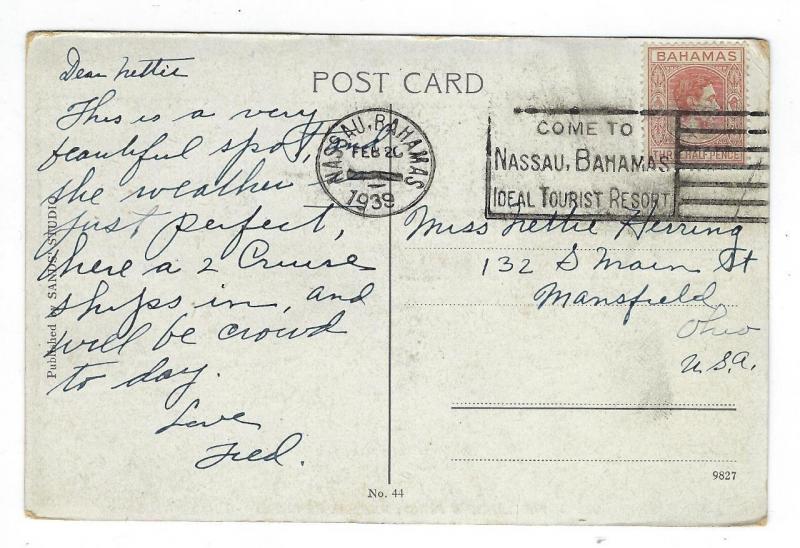 POST CARD
Dear Nettie
This is a very
beautiful spot, and
the weather is
just perfect,
there a 2 Cruise
ships in, and
will be crowd
to day.
Love
Fred.
Published by SANDS' STUDIO
NASSAU, BAHAMAS
FEB 20
1939
COME TO
NASSAU, BAHAMAS
IDEAL TOURIST RESORT
BAHAMAS
HALFPENCE
Miss Nettie Herring
132 S Main St
Mansfield
Ohio
U.S.A.
No. 44
9827